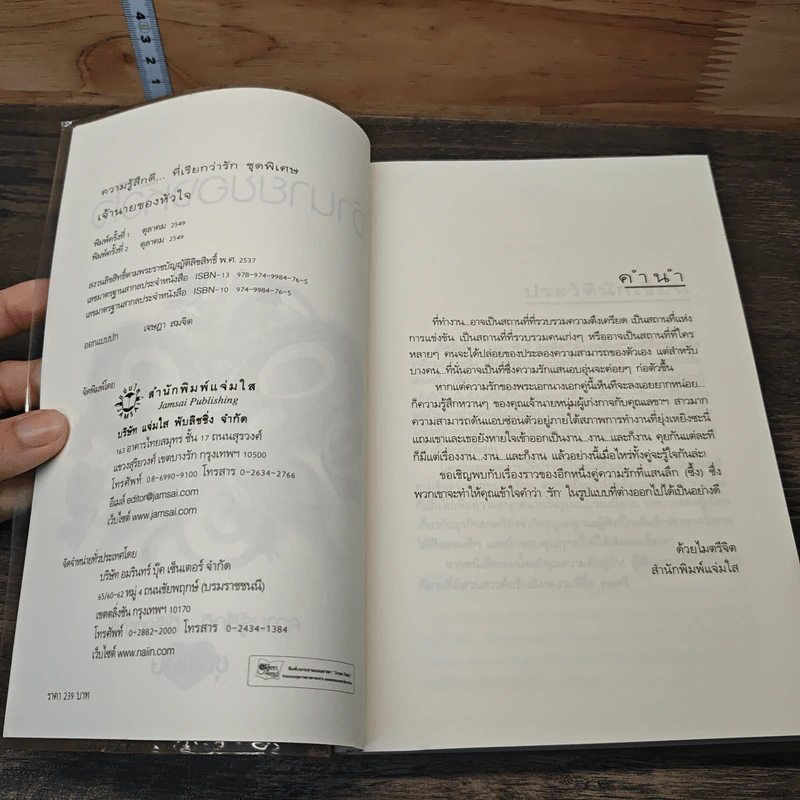 ความรู้สึกดี... ที่เรียกว่ารัก ชุดพิเศษ
เจ้านายของหัวใจ
พิมพ์ครั้งที่ 1 ตุลาคม 2549
พิมพ์ครั้งที่ 2 ตุลาคม 2549
สงวนลิขสิทธิ์ตามพระราชบัญญัติลิขสิทธิ์ พ.ศ. 2537
เลขมาตรฐานสากลประจำหนังสือ ISBN-13 978-974-9984-76-5
เลขมาตรฐานสากลประจำหนังสือ ISBN-10 974-9984-76-5
ออกแบบปก เจษฎา สมจิต
จัดพิมพ์โดย
สำนักพิมพ์แจ่มใส
Jamsai Publishing
บริษัท แจ่มใส พับลิชชิ่ง จำกัด
163 อาคารไทยสมุทร ชั้น 17 ถนนสุรวงศ์
แขวงสุริยวงศ์ เขตบางรัก กรุงเทพฯ 10500
โทรศัพท์ 08-6990-9100 โทรสาร 0-2634-2766
อีเมล์ editor@jamsai.com
เว็บไซต์ www.jamsai.com
จัดจำหน่ายทั่วประเทศโดย
บริษัท อมรินทร์ บุ๊ค เซ็นเตอร์ จำกัด
65/60-62 หมู่ 4 ถนนชัยพฤกษ์ (บรมราชชนนี)
เขตตลิ่งชัน กรุงเทพฯ 10170
โทรศัพท์ 0-2882-2000 โทรสาร 0-2434-1384
เว็บไซต์ www.naiin.com
ราคา 239 บาท
คำนำ
ที่ทำงาน...อาจเป็นสถานที่ที่รวบรวมความตึงเครียด เป็นสถานที่แห่ง
การแข่งขัน เป็นสถานที่ที่รวบรวมคนเก่งๆ หรืออาจเป็นสถานที่ที่ใคร
หลายๆ คนจะได้ปล่อยของประลองความสามารถของตัวเอง แต่สำหรับ
บางคน...ที่นั่นอาจเป็นที่ซึ่งความรักแสนอบอุ่นจะค่อยๆ ก่อตัวขึ้น
หากแต่ความรักของพระเอกนางเอกคู่นี้เห็นทีจะลงเอยยากหน่อย...
ก็ความรู้สึกหวานๆ ของคุณเจ้านายหนุ่มผู้เก่งกาจกับคุณเลขาฯ สาวมาก
ความสามารถดันแอบซ่อนตัวอยู่ภายใต้สภาพการทำงานที่ยุ่งเหยิงซะนี่
แถมเขาและเธอยังหายใจเข้าออกเป็นงาน...งาน...และก็งาน คุยกันแต่ละที
ก็มีแต่เรื่องงาน...งาน...และก็งาน แล้วอย่างนี้เมื่อไหร่ทั้งคู่จะรู้ใจกันล่ะ!
ขอเชิญพบกับเรื่องราวของอีกหนึ่งคู่ความรักที่แสนลึก (ซึ้ง) ซึ่ง
พวกเขาจะทำให้คุณเข้าใจคำว่า 'รัก' ในรูปแบบที่ต่างออกไปได้เป็นอย่างดี
ด้วยไมตรีจิต
สำนักพิมพ์แจ่มใส
4
3
2
1